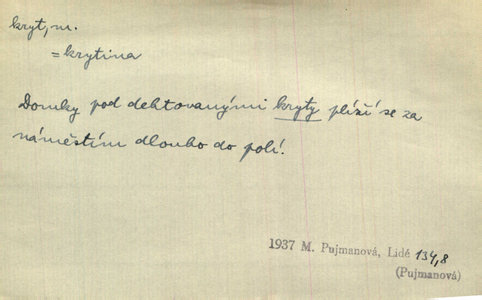 kryt, m.
= krytina
Domky pod dehtovanými kryty plíží se za
náměstím dlouho do polí.
1937 M. Pujmanová, Lidé 134,8
(Pujmanová)